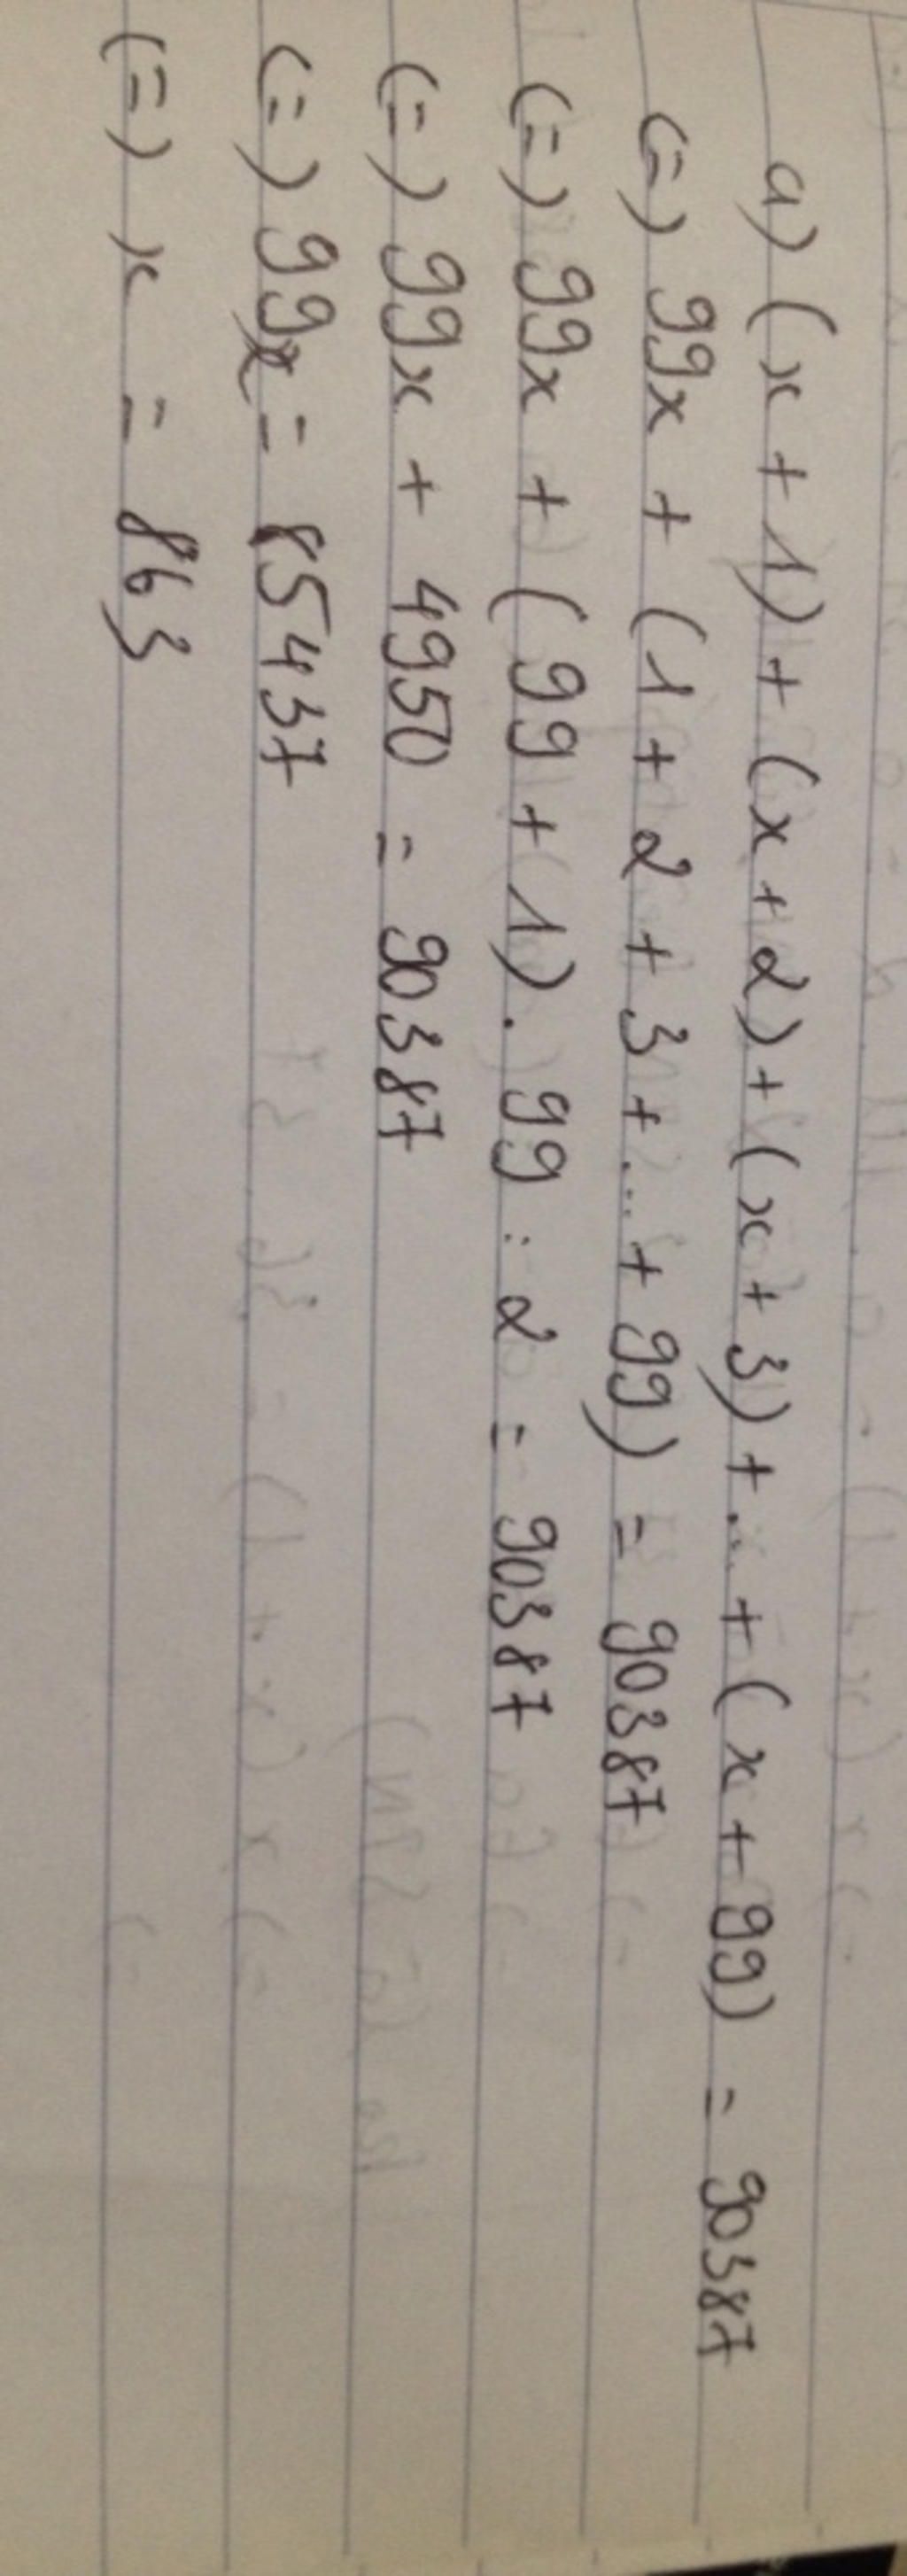 a) (x + 1) + (x + 2) + (x + 3) + ... + (x + 99) = 90387
(=) 99x + (1 + 2 + 3 + ... + 99) = 90387
(=) 99x + (99 + 1) . 99 : 2 = 90387
(=) 99x + 4950 = 90387
(=) 99x = 85437
(=) x = 863